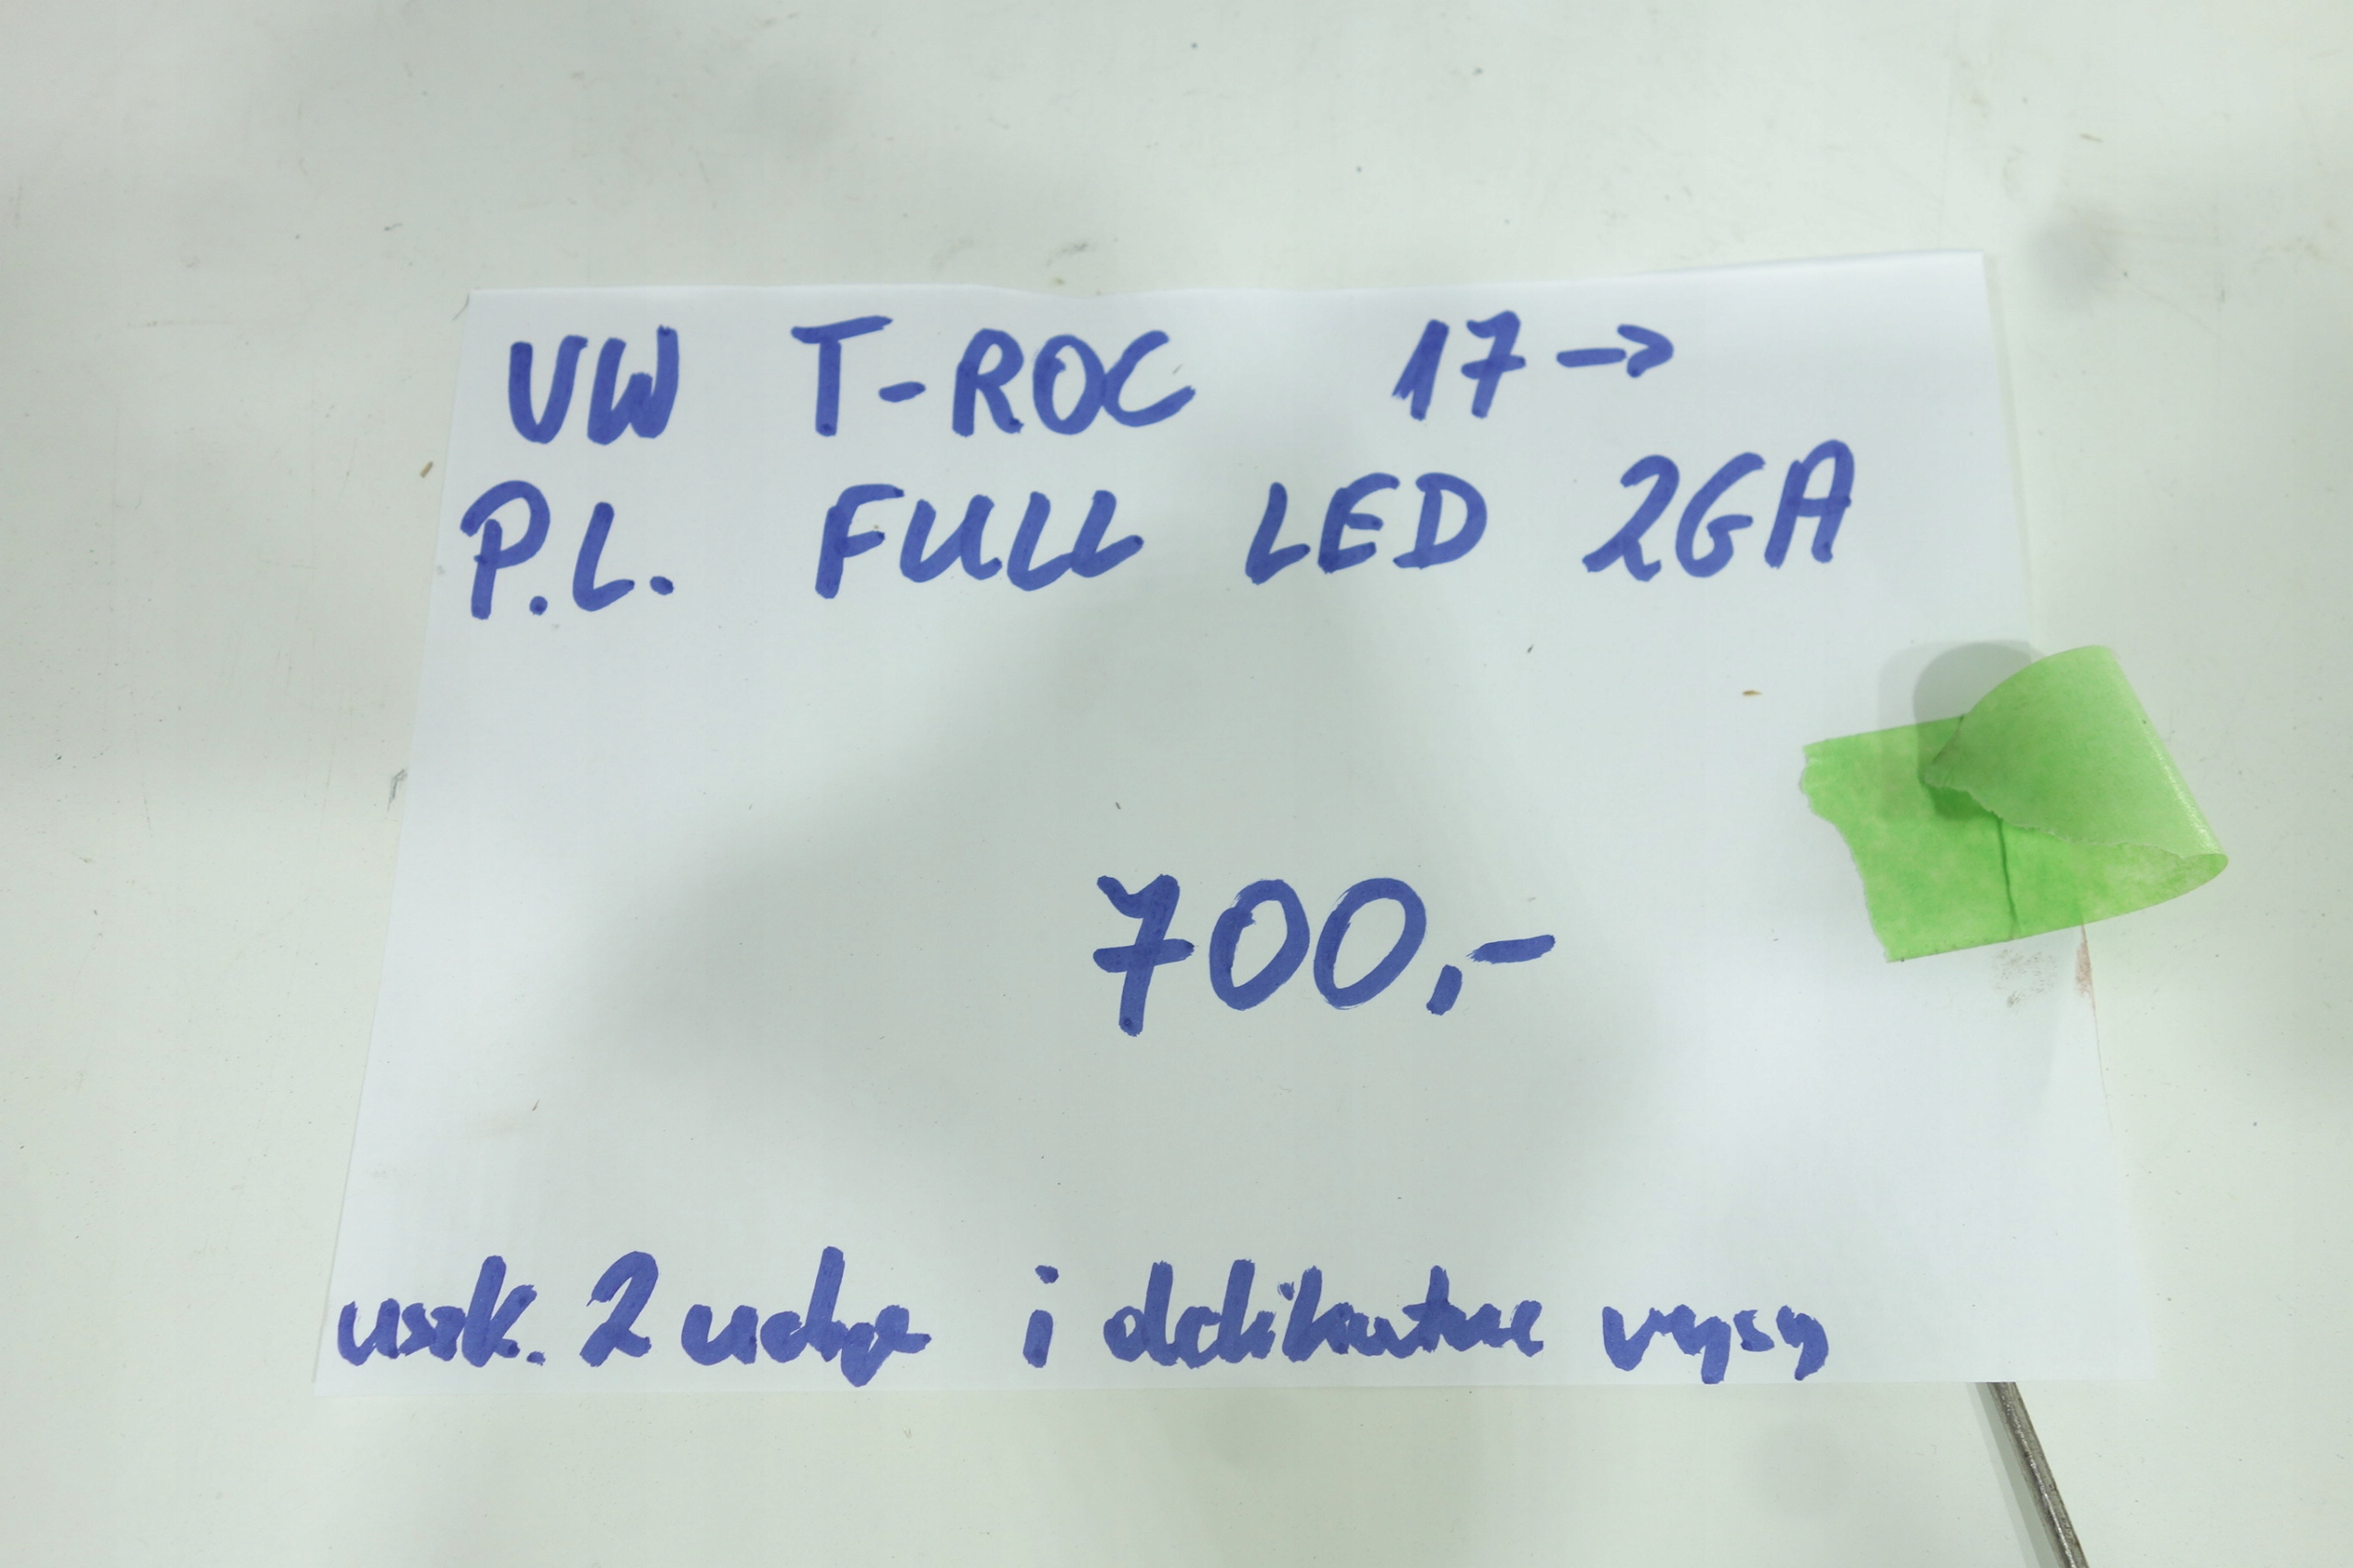 VW T-ROC 17->
P.L. FULL LED 2GA
700,-
uszk. 2 ucha i delikatne rysy